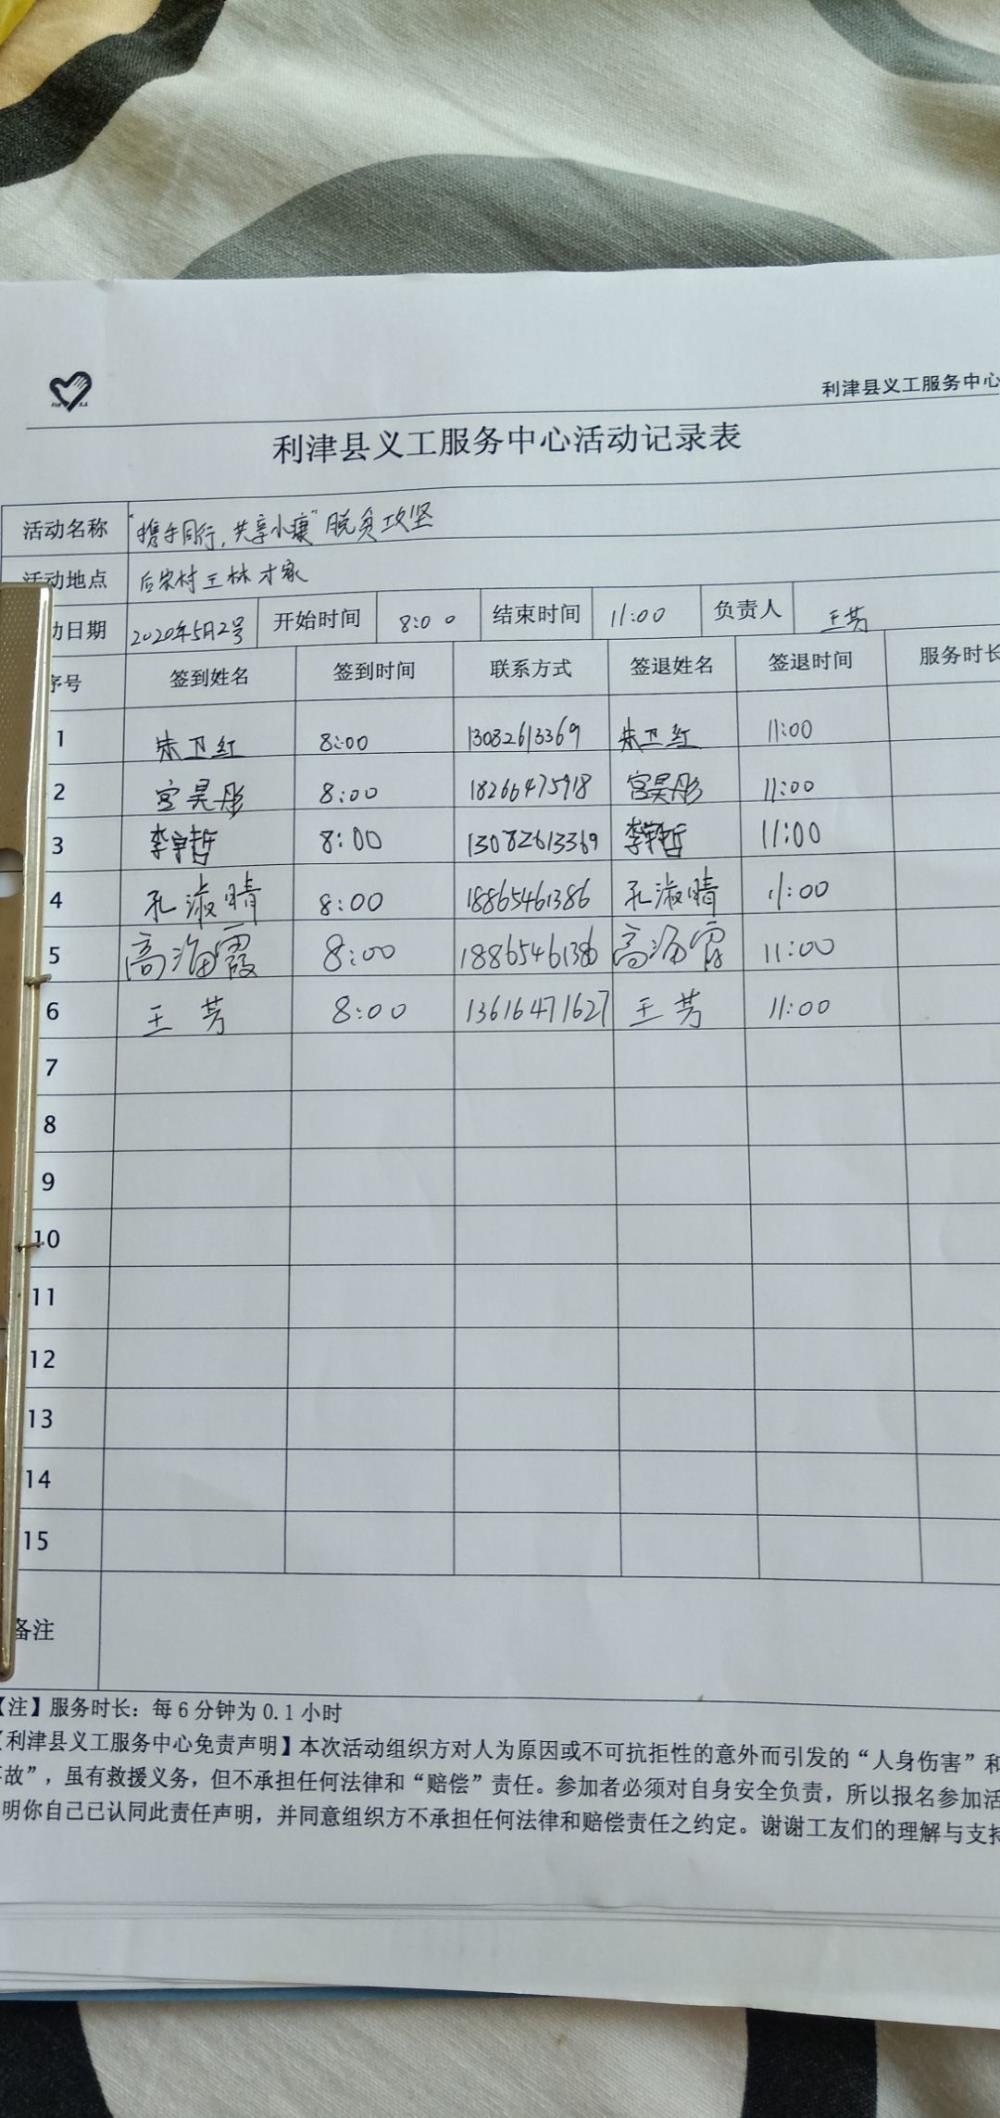 利津县义工服务中心
利津县义工服务中心活动记录表
活动名称 "携手同行,共享小康"脱贫攻坚
活动地点 后宋村王林才家
动日期 2020年5月2号 开始时间 8:00 结束时间 11:00 负责人 王芳
序号 签到姓名 签到时间 联系方式 签退姓名 签退时间 服务时长
1 朱卫红 8:00 13082613369 朱卫红 11:00
2 宫昊彤 8:00 18266475918 宫昊彤 11:00
3 李宇哲 8:00 13082613369 李宇哲 11:00
4 孔淑晴 8:00 18865461386 孔淑晴 11:00
5 高海霞 8:00 18865461386 高海霞 11:00
6 王芳 8:00 13616471627 王芳 11:00
7
8
9
10
11
12
13
14
15
备注
【注】服务时长：每6分钟为0.1小时
【利津县义工服务中心免责声明】本次活动组织方对人为原因或不可抗拒性的意外而引发的“人身伤害”和
故”，虽有救援义务，但不承担任何法律和“赔偿”责任。参加者必须对自身安全负责，所以报名参加活
明你自己已认同此责任声明，并同意组织方不承担任何法律和赔偿责任之约定。谢谢工友们的理解与支持